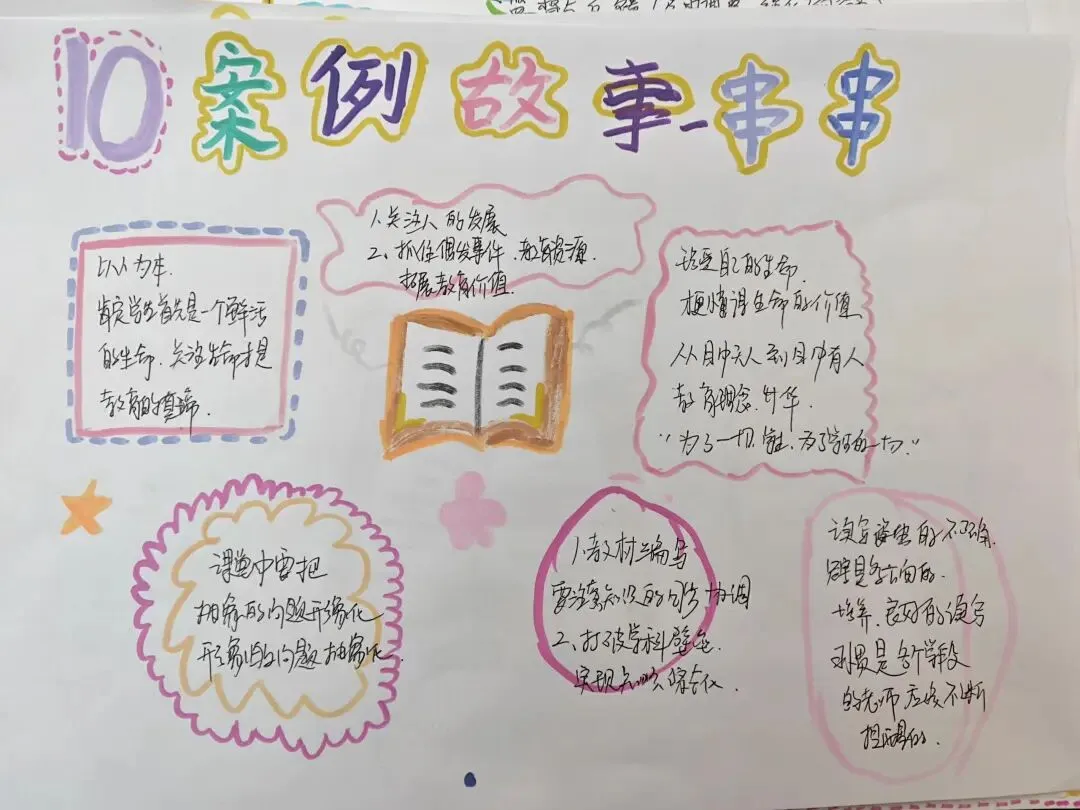 10案例故事-串串
以人为本.
肯定学生首先是一个鲜活
的生命.关注生命才是
教育的真谛.
1.关注人的发展
2、抓住偶发事件.教育资源.
拓展教育价值.
珍爱自己的生命.
更懂得生命的价值
从目中无人到目中有人
教育理念.升华.
"为了一切学生.为了学生的一切."
课堂中要把
抽象的问题形象化
形象的问题抽象化.
1.教材编写
要注意知识的同步协调
2、打破学科壁垒.
实现知识综合化.
读写姿势的不正确.
培养.良好的读写
习惯是各个学段
的老师应该不断
提醒的.